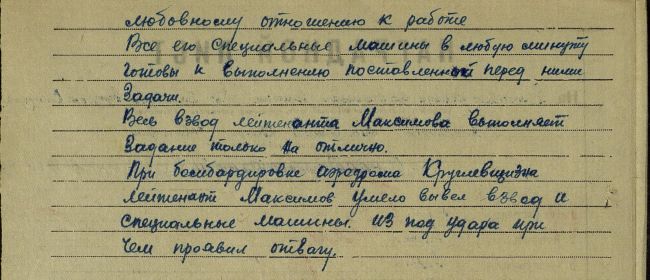 любовному отношению к работе
Все его специальные машины в любую минуту
готовы к выполнению поставленной перед ними
Задачи.
Весь взвод лейтенанта Максимова выполняет
Задание только на отлично.
При бомбардировке аэродрома Круглевщизна
лейтенант Максимов умело вывел взвод и
специальные машины из под удара при
Чем проявил отвагу.